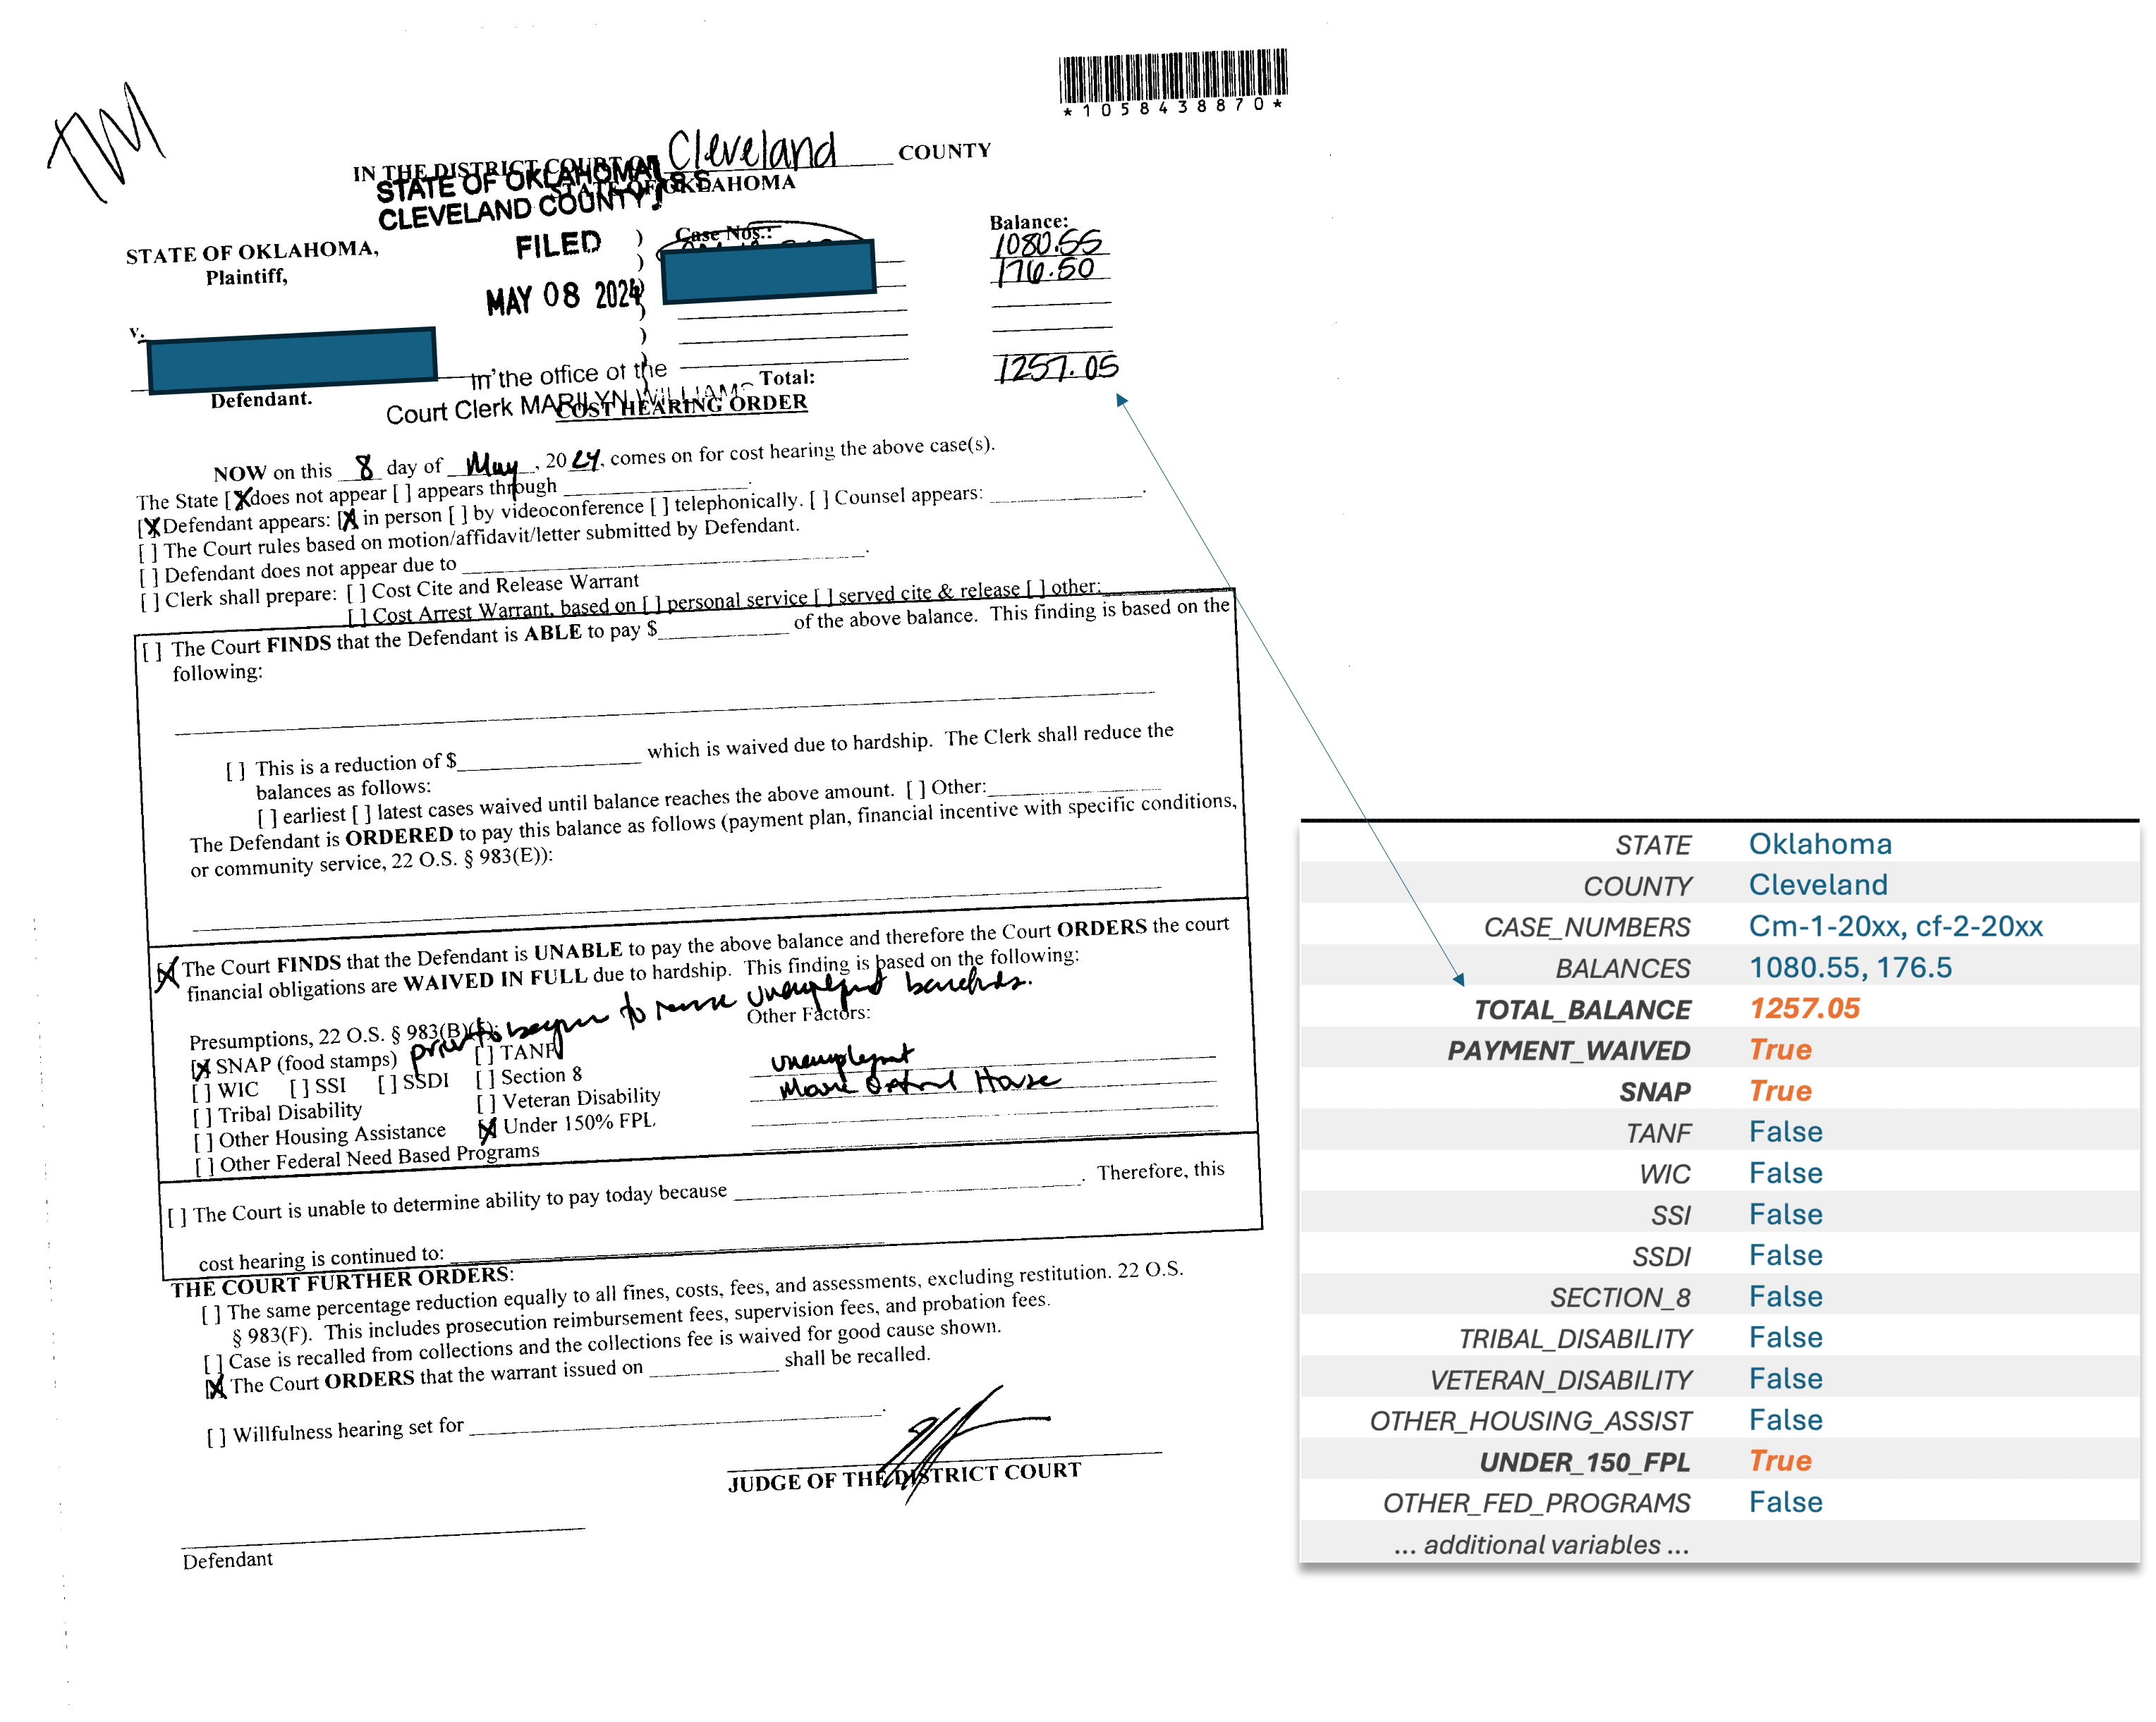 TM
*1058438870*
IN THE DISTRICT COURT OF Cleveland COUNTY
STATE OF OKLAHOMA
STATE OF OKLAHOMA } SS
CLEVELAND COUNTY
FILED
MAY 08 2024
In the office of the
Court Clerk MARILYN WILLIAMS
STATE OF OKLAHOMA,
Plaintiff,
v.
Defendant.
)
)
)
)
)
)
Case Nos.:
Balance:
1080.55
176.50
Total: 1257.05
COST HEARING ORDER
NOW on this 8 day of May, 2024, comes on for cost hearing the above case(s).
The State [X] does not appear [ ] appears through
[X] Defendant appears: [X] in person [ ] by videoconference [ ] telephonically. [ ] Counsel appears:
[ ] The Court rules based on motion/affidavit/letter submitted by Defendant.
[ ] Defendant does not appear due to
[ ] Clerk shall prepare: [ ] Cost Cite and Release Warrant
[ ] Cost Arrest Warrant, based on [ ] personal service [ ] served cite & release [ ] other:
[ ] The Court FINDS that the Defendant is ABLE to pay $ of the above balance. This finding is based on the
following:
[ ] This is a reduction of $ which is waived due to hardship. The Clerk shall reduce the
balances as follows:
[ ] earliest [ ] latest cases waived until balance reaches the above amount. [ ] Other:
The Defendant is ORDERED to pay this balance as follows (payment plan, financial incentive with specific conditions,
or community service, 22 O.S. § 983(E)):
[X] The Court FINDS that the Defendant is UNABLE to pay the above balance and therefore the Court ORDERS the court
financial obligations are WAIVED IN FULL due to hardship. This finding is based on the following:
prior to to
Presumptions, 22 O.S. § 983(B)
Other Factors:
[X] SNAP (food stamps) [ ] TANF
[ ] WIC [ ] SSI [ ] SSDI [ ] Section 8
[ ] Tribal Disability [ ] Veteran Disability
[ ] Other Housing Assistance [X] Under 150% FPL
[ ] Other Federal Need Based Programs
House
[ ] The Court is unable to determine ability to pay today because . Therefore, this
cost hearing is continued to:
THE COURT FURTHER ORDERS:
[ ] The same percentage reduction equally to all fines, costs, fees, and assessments, excluding restitution. 22 O.S.
§ 983(F). This includes prosecution reimbursement fees, supervision fees, and probation fees.
[ ] Case is recalled from collections and the collections fee is waived for good cause shown.
[X] The Court ORDERS that the warrant issued on shall be recalled.
[ ] Willfulness hearing set for .
JUDGE OF THE DISTRICT COURT
Defendant
STATE Oklahoma
COUNTY Cleveland
CASE_NUMBERS Cm-1-20xx, cf-2-20xx
BALANCES 1080.55, 176.5
TOTAL_BALANCE 1257.05
PAYMENT_WAIVED True
SNAP True
TANF False
WIC False
SSI False
SSDI False
SECTION_8 False
TRIBAL_DISABILITY False
VETERAN_DISABILITY False
OTHER_HOUSING_ASSIST False
UNDER_150_FPL True
OTHER_FED_PROGRAMS False
... additional variables ...